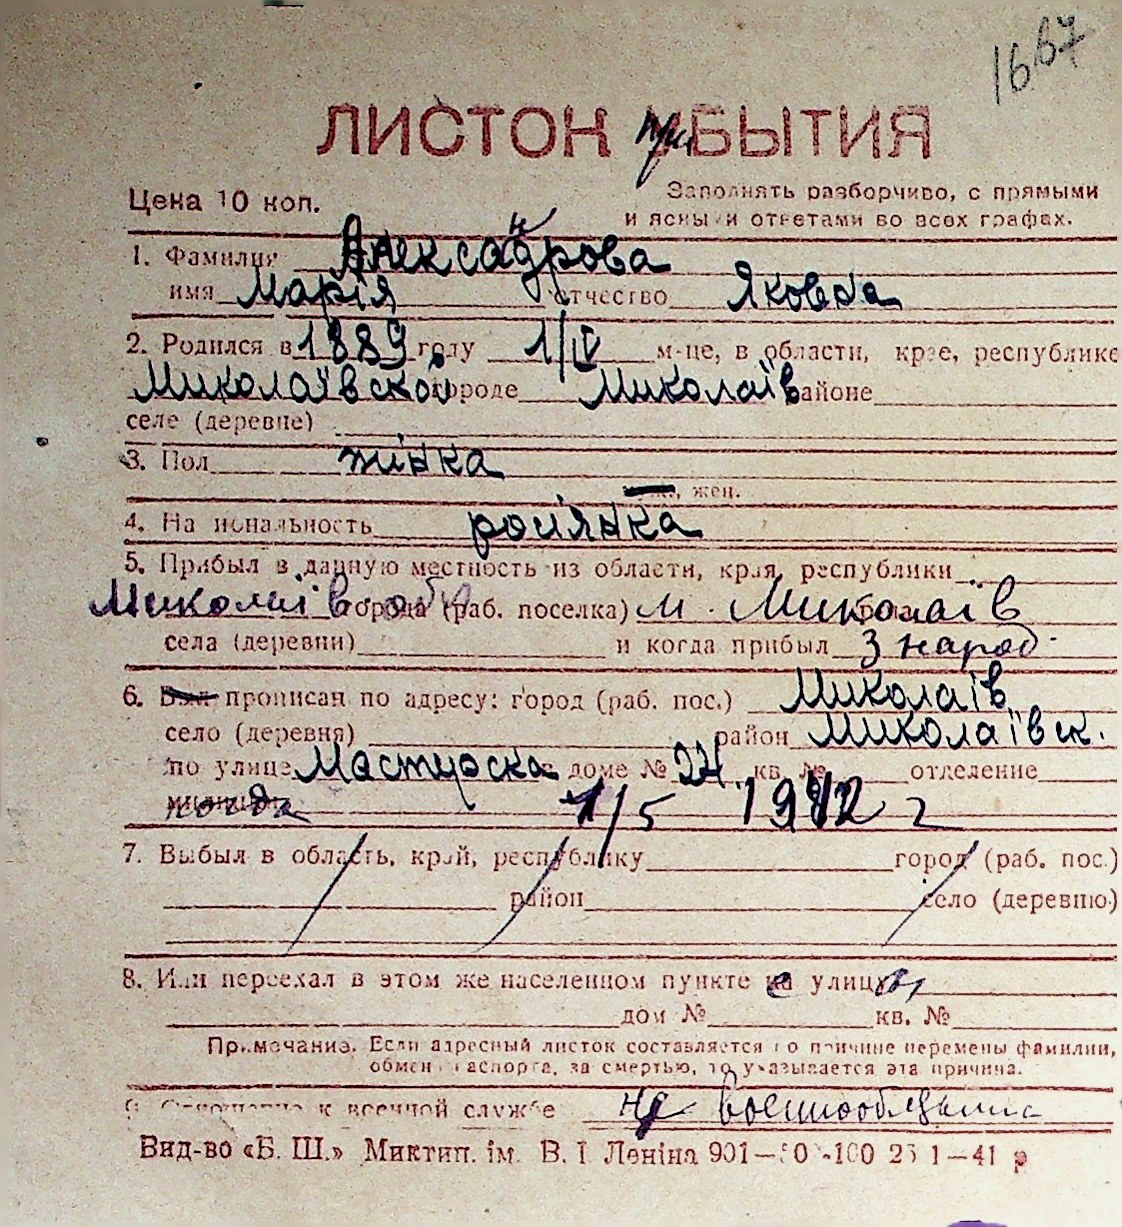 1667
ЛИСТОК при БЫТИЯ
Цена 10 коп.
Заполнять разборчиво, с прямыми
и ясными ответами во всех графах.
1. Фамилия Александрова
имя Марія отчество Яковна
2. Родился в 1889 году 1/IV м-це, в области, крае, республике
Миколаївской городе Миколаїв районе
селе (деревне)
3. Пол жінка
муж., жен.
4. Национальность росіянка
5. Прибыл в данную местность из области, края, республики
Миколаїв. обл города (раб. поселка) м. Миколаїв
села (деревни) и когда прибыл З народ.
6. Был прописан по адресу: город (раб. пос.) Миколаїв
село (деревня) район Миколаївск.
по улице Мастирска доме № 24 кв. № отделение
милиции когда 1/5 1942 г
7. Выбыл в область, край, республику город (раб. пос.)
район село (деревню)
8. Или переехал в этом же населенном пункте на улицу
дом № кв. №
Примечание. Если адресный листок составляется по причине перемены фамилии,
обмен паспорта, за смертью, то указывается эта причина.
9. Отношение к военной службе не военнообязана
Вид-во «Б. Ш.» Миктип. ім. В. І Леніна 901—50 -100 25 1—41 р